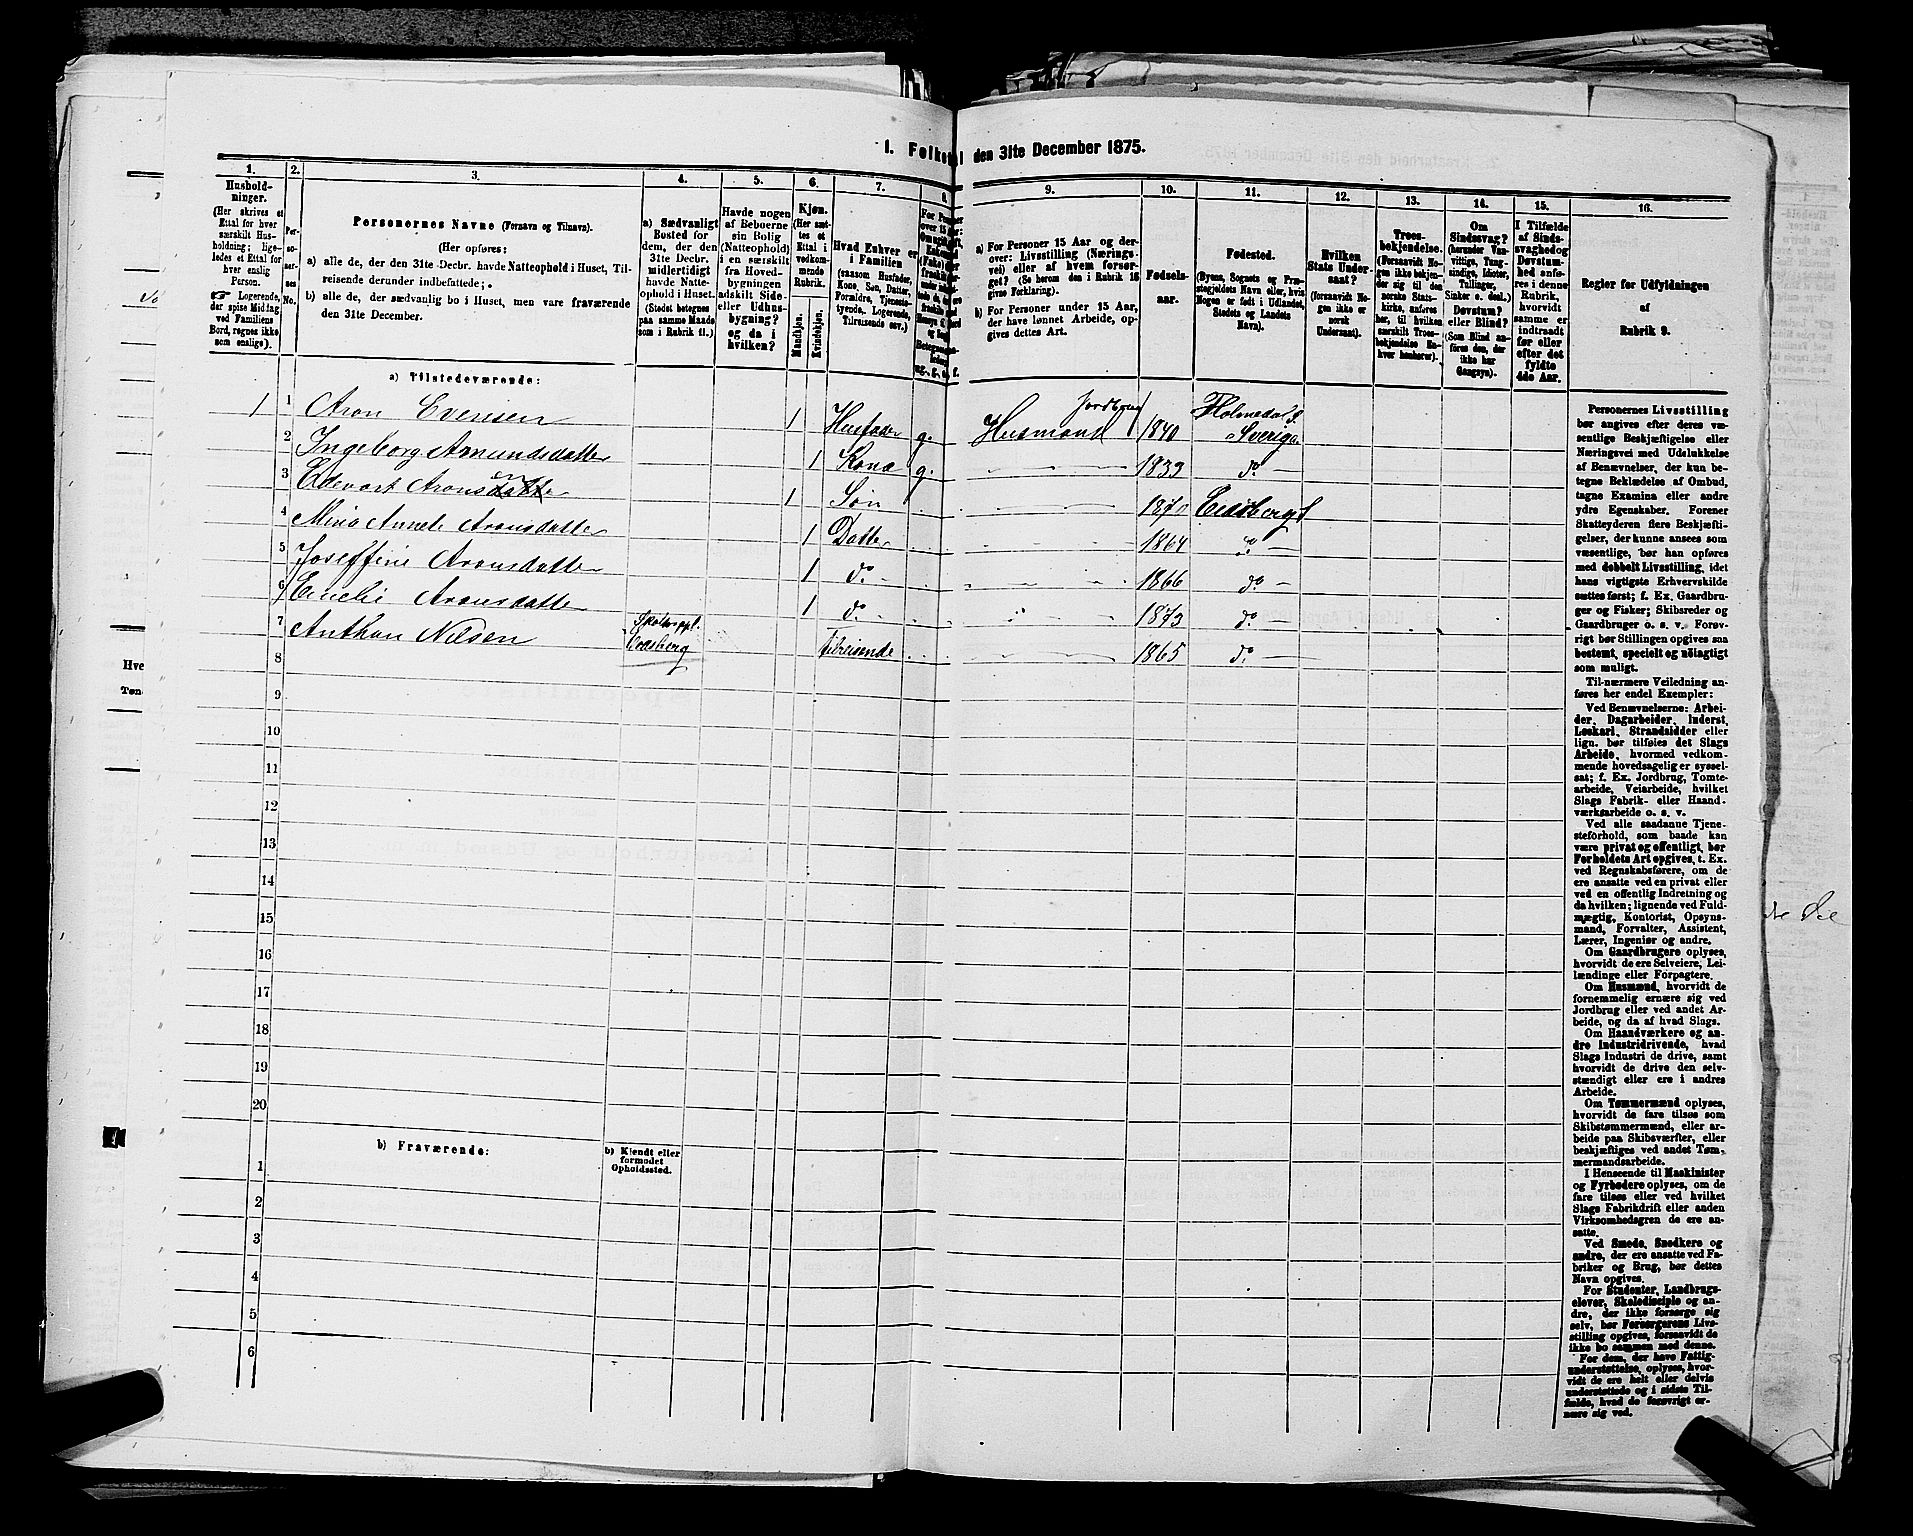 1. Folketal den 31te December 1875.
1. 2. 3. 4. 5. 6. 7. 8. 9. 10. 11. 12. 13. 14. 15. 16.
Hushold-
ninger.
(Her skrives et
Ettal for hver
særskilt Hus-
holdning; lige-
ledes et Ettal for
hver enslig
Person.
☞ Logerende,
der spise Middag
ved Familiens
Bord, regnes ikke
som enslige).
Per-
so-
ner-
nes
No.
Personernes Navne (Fornavn og Tilnavn).
(Her opføres:
a) alle de, der den 31te Decbr. havde Natteophold i Huset, Til-
reisende derunder indbefattede;
b) alle de, der sædvanlig bo i Huset, men vare fraværende
den 31te December.
a) Sædvanligt
Bosted for
dem, der den
31te Decbr.
midlertidigt
havde Natte-
ophold i Huset.
(Stedet betegnes
paa samme Maade
som i Rubrik 11.)
Havde nogen
af Beboerne
sin Bolig
(Natteophold)
i en særskilt
fra Hoved-
bygningen
adskilt Side-
eller Udhus-
bygning?
og da i
hvilken?
Kjøn.
(Her sæt-
tes et
Ettal i
vedkom-
mende
Rubrik.
Mandkjøn.
Kvindekjøn.
Hvad Enhver er
i Familien
(saasom Husfader,
Kone, Søn, Datter,
Forældre, Tjeneste-
tyende, Logerende,
Tilreisende osv.)
a) For Personer 15 Aar og der-
over: Livsstilling (Nærings-
vei) eller af hvem forsør-
get? (Se herom den i Rubrik 16
givne Forklaring).
b) For Personer under 15 Aar,
der have lønnet Arbeide, op-
gives dettes Art.
Fødsels-
aar.
Fødested.
(Byens, Sognets og Præ-
stegjeldets Navn eller, hvis
Nogen er født i Udlandet,
Stedets og Landets
Navn).
Hvilken
Stats Under-
saat?
(forsaavidt No-
gen ikke er
norsk
Undersaat).
Troes-
bekjendelse.
(Forsaavidt No-
gen ikke bekjen-
der sig til den
norske Stats-
kirke, anføres
her, til hvilken
særskilt Troes-
bekjendelse En-
hver henhører).
Om
Sindssvag?
(herunder Van-
vittige, Tung-
sindige, Idioter,
Tullinger,
Sinker o. desl.)
Døvstum?
eller Blind?
(Som Blind an-
føres den, der
ikke har
Gangsyn).
I Tilfælde
af Sinds-
svaghed og
Døvstum-
hed anfø-
res i denne
Rubrik,
hvorvidt
samme er
indtraadt
før eller
efter det
fyldte
4de Aar.
Regler for Udfyldningen
af
Rubrik 9.
a) Tilstedeværende:
1 1 Aron Evensen 1 Husfader g. Husmand Jordbrug 1840 Holmedal S. Sverige
2 Ingeborg Amundsdatter 1 Kone g. 1839 do
3 Edevart Aronsen 1 Søn 187 Eidsberg
4 Mina Annete Aronsdatter 1 Datter 1864 do
5 Joseffine Aronsdatter 1 do 1866 do
6 Emelie Aronsdatter 1 do 1873 do
7 Anthon Nilsen Eidsberg tilreisende 1865 do
8
9
10
11
12
13
14
15
16
17
18
19
20
b) Fraværende:
b) Kjendt eller
formodet
Opholdssted.
1
2
3
4
5
6
Personernes Livsstilling
bør angives efter deres væ-
sentlige Beskjæftigelse eller
Næringsvei med Udelukkelse
af Benævnelser, der kun be-
tegne Beklædelse af Ombud,
tagne Examina eller andre
ydre Egenskaber. Forener
Skatteyderen flere Beskjæfti-
gelser, der kunne ansees som
væsentlige, bør han opføres
med dobbelt Livsstilling, idet
hans vigtigste Erhvervskilde
sættes først; f. Ex. Gaardbru-
ger og Fisker; Skibsreder og
Gaardbruger o. s. v. Forøv-
rigt bør Stillingen opgives saa
bestemt, specielt og nøiagtigt
som muligt.
Til nærmere Veiledning an-
føres her endel Exempler:
Ved Benævnelserne: Arbei-
der, Dagarbeider, Inderst,
Løskarl, Strandsidder eller
lign. bør tilføies det Slags
Arbeide, hvormed vedkom-
mende hovedsagelig er syssel-
sat; f. Ex. Jordbrug, Tomte-
arbeide, Veiarbeide, hvilket
Slags Fabrik- eller Haand-
værksarbeide o. s. v.
Ved alle saadanne Tjene-
steforhold, som baade kan
være privat og offentligt, bør
Forholdets Art opgives, t. Ex.
ved Regnskabsførere, om de
ere ansatte ved en privat eller
ved en offentlig Indretning og
da hvilken; lignende ved Fuld-
mægtig, Kontorist, Opsyns-
mand, Forvalter, Assistent,
Lærer, Ingeniør og andre.
Om Gaardbrugere oplyses,
hvorvidt de ere Selveiere, Lei-
lændinge eller Forpagtere.
Om Husmænd, hvorvidt de
fornemmelig ernære sig ved
Jordbrug eller ved andet Ar-
beide, og da af hvad Slags.
Om Haandværkere og an-
dre Industridrivende, hvad
Slags Industri de drive, samt
hvorvidt de drive den selv-
stændigt eller ere i andres
Arbeide.
Om Tømmermænd oplyses,
hvorvidt de fare tilsøs som
Skibstømmermænd, eller ar-
beide paa Skibsværfter, eller
beskjæftiges ved andet Tøm-
mermandsarbeide.
I Henseende til Maskinister
og Fyrbødere oplyses, om de
fare tilsøs eller ved hvilket
Slags Fabrikdrift eller anden
Virksomhedsgren de ere an-
satte.
Ved Smede, Snedkere og
andre, der ere ansatte ved Fa-
briker og Brug, bør dettes
Navn opgives.
For Studenter, Landbrugs-
elever, Skoledisciple og an-
dre, der ikke forsørge sig
selv, bør Forsørgerens Livs-
stilling opgives, forsaavidt de
ikke bo sammen med denne.
For dem, der have Fattig-
understøttelse, oplyses, hvor-
vidt de ere helt eller delvis
understøttede og i sidste Til-
fælde, hvad de forøvrigt er-
nære sig ved.